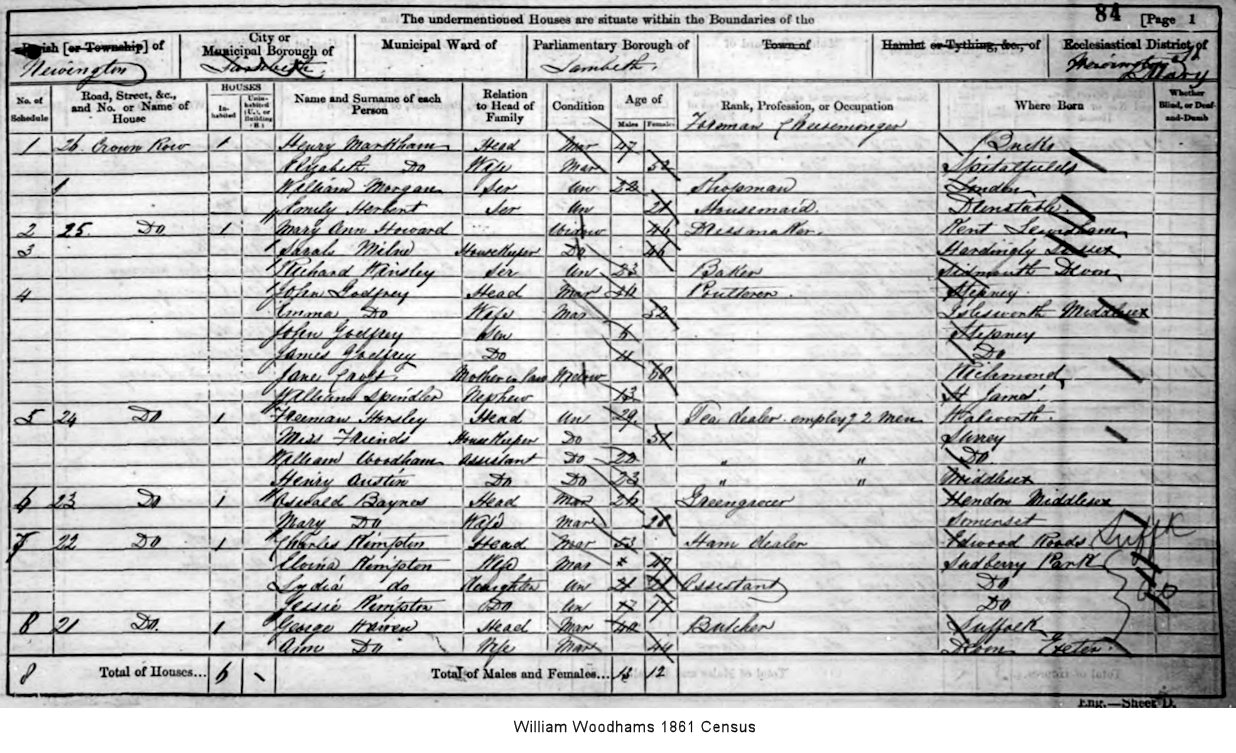 The undermentioned Houses are situate within the Boundaries of the
84 [Page 1
Parish [or Township] of
City or Municipal Borough of
Municipal Ward of
Parliamentary Borough of
Town of
Hamlet or Tything, &c., of
Ecclesiastical District of
Newington
Lambeth
Lambeth
St Mary
No. of Schedule
Road, Street, &c., and No. or Name of House
HOUSES
Inhabited
Uninhabited (U.), or Building (B.)
Name and Surname of each Person
Relation to Head of Family
Condition
Age of
Males
Females
Rank, Profession, or Occupation
Where Born
Whether Blind, or Deaf-and-Dumb
Foreman Cheesemonger
1 26 Crown Row 1 Henry Markham Head Mar 47 Bucks
Elizabeth Do Wife Mar 52 Spitalfields
1 William Morgan Ser Un 22 Shopman London
Emily Herbert Ser Un 21 Housemaid Dunstable
2 25 Do 1 Mary Ann Howard Widow 46 Dressmaker Kent Lewisham
3 Sarah Milne HouseKeeper Do 46 Hardingly Sussex
Richard Kinsley Ser Un 23 Baker Sidmouth Devon
4 John Godfrey Head Mar Poulterer Stepney
Emma Do Wife Mar 32 Islesworth Middlesex
John Godfrey Son 6 Stepney
James Godfrey Do 4 Do
Jane Mother in law Widow 68 Richmond
William Spindler Nephew 13 St James'
5 24 Do 1 Freeman Horsley Head Un 29 Tea dealer employg 2 men Walworth
Miss Friends HouseKeeper Do 51 Surrey
William Woodham Assistant Do 22 " " Do
Henry Austin Do Do 23 " " Middlesex
6 23 Do 1 Oswald Baynes Head Mar 26 Greengrocer Hendon Middlesex
Mary Do Wife Mar 28 Somerset
7 22 Do 1 Charles Kimpton Head Mar 53 Ham dealer Suffk
Kimpton Wife Mar 47 Sudberry Park
Lydia do Daughter Un 21 Assistant Do
Jessie Kimpton Do Un 17 Do
Do
8 21 Do 1 George Head Mar 42 Butcher Suffolk
Ann Do Wife Mar 44 Devon Exeter
8 Total of Houses... 6 Total of Males and Females... 13 12
Eng.—Sheet D.
William Woodhams 1861 Census